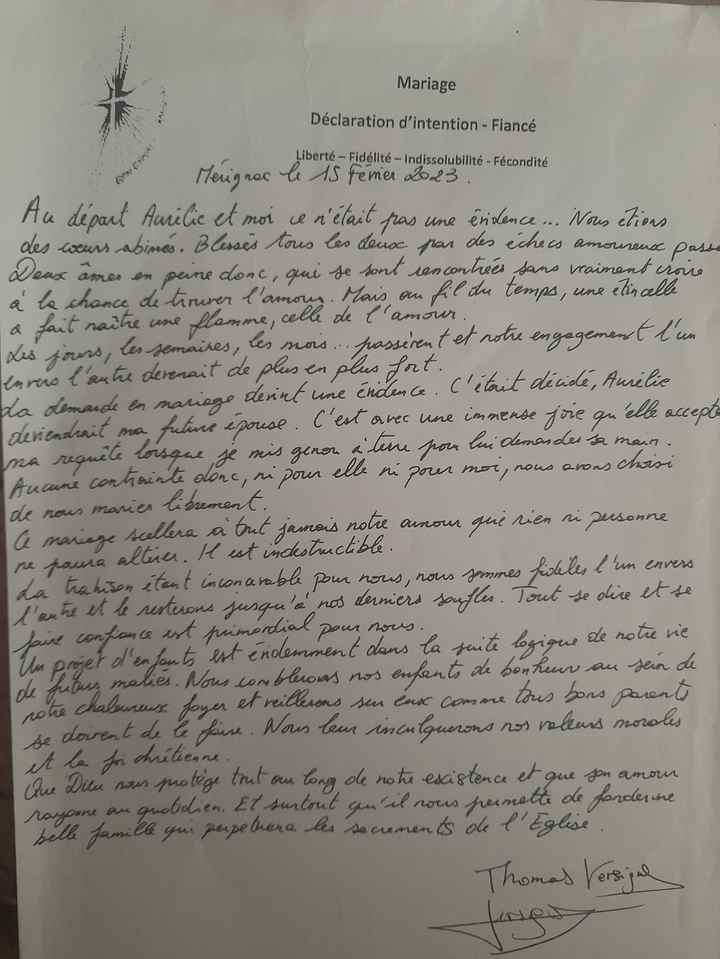 Mariage
Déclaration d'intention - Fiancé
Liberté – Fidélité – Indissolubilité - Fécondité
Mérignac le 15 Février 2023.
Au départ Aurélie et moi ce n'était pas une évidence... Nous étions
des cœurs abimés. Blessés tous les deux par des échecs amoureux passé
Deux âmes en peine donc, qui se sont rencontrées sans vraiment croire
à la chance de trouver l'amour. Mais au fil du temps, une étincelle
a fait naître une flamme, celle de l'amour.
Les jours, les semaines, les mois... passèrent et notre engagement l'un
envers l'autre devenait de plus en plus fort.
La demande en mariage devint une évidence. C'était décidé, Aurélie
deviendrait ma future épouse. C'est avec une immense joie qu'elle accepta
ma requête lorsque je mis genou à terre pour lui demander sa main.
Aucune contrainte donc, ni pour elle ni pour moi, nous avons choisi
de nous marier librement.
Ce mariage scellera à tout jamais notre amour que rien ni personne
ne pourra altérer. Il est indestructible.
La trahison étant inconcevable pour nous, nous sommes fidèles l'un envers
l'autre et le resterons jusqu'à nos derniers souffles. Tout se dire et se
faire confiance est primordial pour nous.
Un projet d'enfants est évidemment dans la suite logique de notre vie
de futurs mariés. Nous comblerons nos enfants de bonheur au sein de
notre chaleureux foyer et veillerons sur eux comme tous bons parents
se doivent de le faire. Nous leur inculquerons nos valeurs morales
et la foi chrétienne.
Que Dieu nous protège tout au long de notre existence et que son amour
rayonne au quotidien. Et surtout qu'il nous permette de fonder une
belle famille qui perpétuera les sacrements de l'Eglise.
Thomas